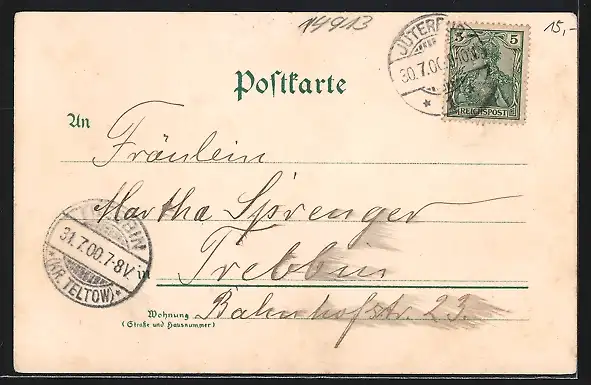 14913
15,-
JÜTERBOG
30.7.00
5 5
REICHSPOST
Postkarte
An
Fräulein
Martha Sprenger
in Trebbin
Wohnung Bahnhofstr. 23.
(Straße und Hausnummer)
TREBBIN
31.7.00.7-8V.
*(KR. TELTOW)*